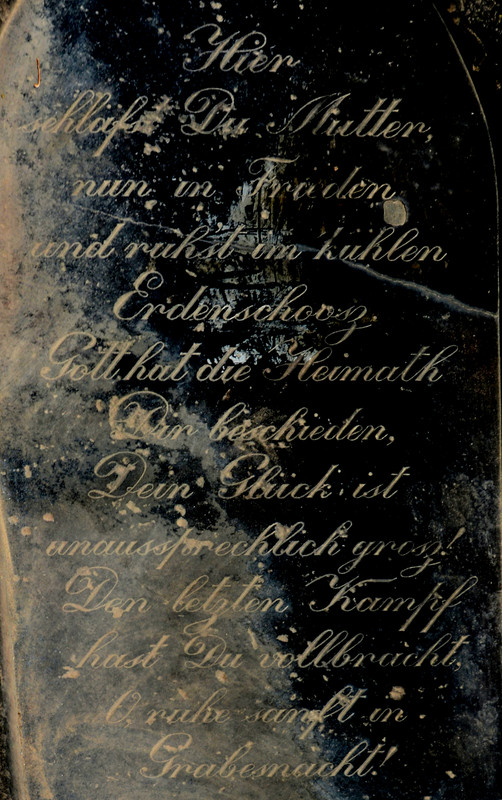 Hier
schläfst Du Mutter,
nun in Frieden
und ruhst im kühlen
Erdenschoosz.
Gott hat die Heimath
Dir beschieden,
Dein Glück ist
unaussprechlich grosz!
Den letzten Kampf
hast Du vollbracht,
O, ruhe sanft in
Grabesnacht!